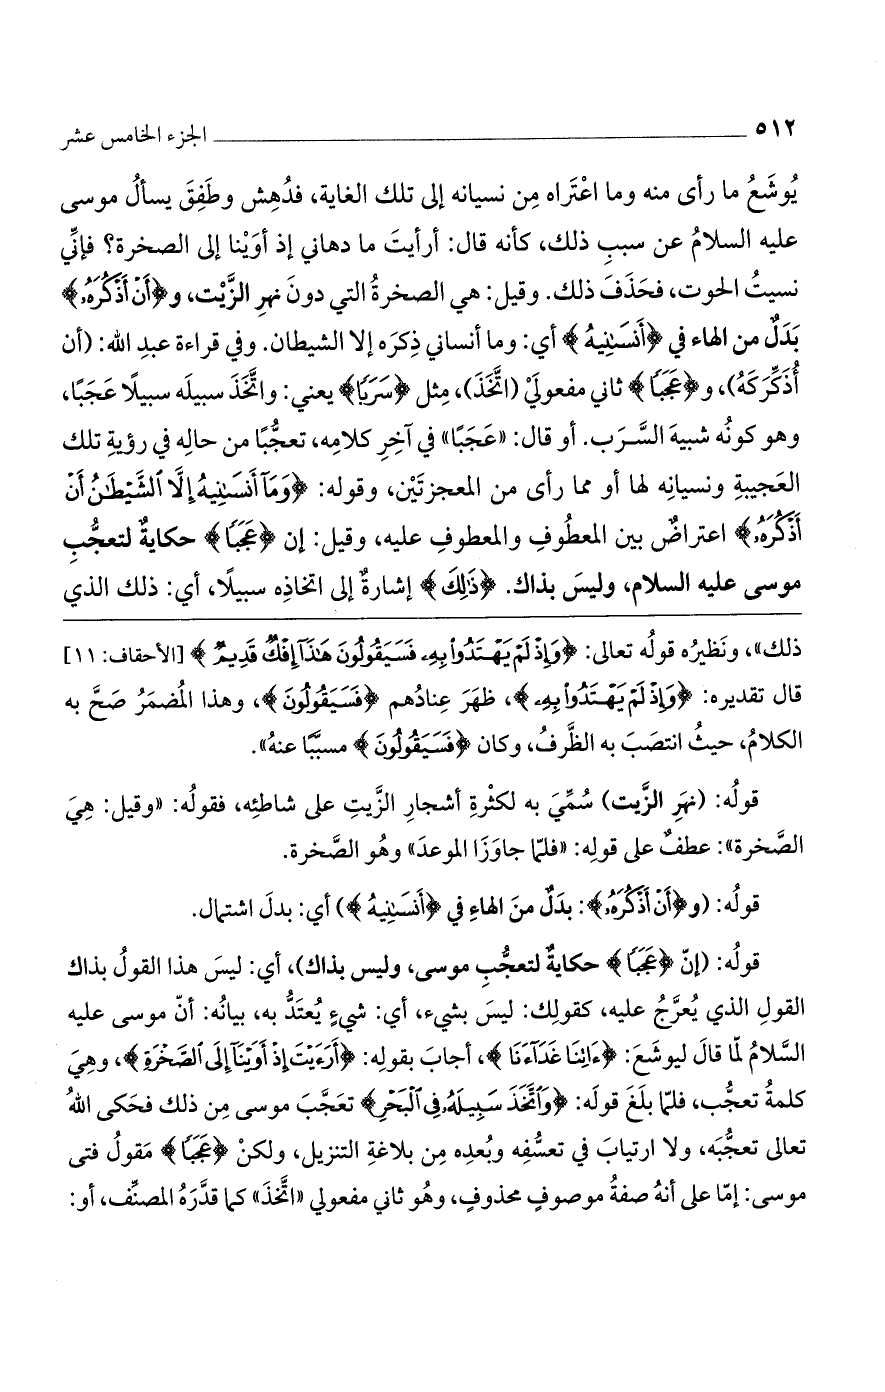 ٥١٢ الجزء الخامس عشر
يُوشَعُ ما رأى منه وما اعْتَراه مِن نسيانه إلى تلك الغاية، فدُهِش وطَفِقَ يسألُ موسى
عليه السلامُ عن سببِ ذلك، كأنه قال: أرأيتَ ما دهاني إذ أوَيْنا إلى الصخرة؟ فإنِّي
نسيتُ الحوت، فحَذَفَ ذلك. وقيل: هي الصخرةُ التي دونَ نهرِ الزَّيْت، و﴿أَنْ أَذْكُرَهُۥ﴾
بَدَلٌ من الهاء في ﴿أَنسَىٰنِيهُ﴾ أي: وما أنساني ذِكرَه إلا الشيطان. وفي قراءة عبدِ الله: (أن
أُذَكِّرَكَهُ)، و﴿عَجَبًا﴾ ثاني مفعولَيْ (اتَّخَذَ)، مِثل ﴿سَرَبًا﴾ يعني: واتَّخَذَ سبيلَه سبيلًا عَجَبًا،
وهو كونُه شبيهَ السَّرَب. أو قال: «عَجَبًا» في آخِرِ كلامِه، تعجُّبًا من حالِه في رؤيةِ تلك
العَجيبةِ ونسيانِه لها أو مما رأى من المعجزتَيْن، وقوله: ﴿وَمَآ أَنسَىٰنِيهُ إِلَّا ٱلشَّيْطَٰنُ أَنْ
أَذْكُرَهُۥ﴾ اعتراضٌ بين المعطُوفِ والمعطوفِ عليه، وقيل: إن ﴿عَجَبًا﴾ حكايةٌ لتعجُّبِ
موسى عليه السلام، وليسَ بذاك. ﴿ذَٰلِكَ﴾ إشارةٌ إلى اتخاذِه سبيلًا، أي: ذلك الذي
ذلك»، ونَظيرُه قولُه تعالى: ﴿وَإِذْ لَمْ يَهْتَدُوا۟ بِهِۦ فَسَيَقُولُونَ هَٰذَآ إِفْكٌ قَدِيمٌ﴾ [الأحقاف: ١١]
قال تقديره: ﴿وَإِذْ لَمْ يَهْتَدُوا۟ بِهِۦ﴾، ظهَرَ عِنادُهم ﴿فَسَيَقُولُونَ﴾، وهذا المُضمَرُ صَحَّ به
الكلامُ، حيثُ انتصَبَ به الظَّرفُ، وكان ﴿فَسَيَقُولُونَ﴾ مسبَّبًا عنهُ».
قولُه: (نهَرِ الزَّيت) سُمِّيَ به لكثْرةِ أشجارِ الزَّيتِ على شاطئِه، فقولُه: «وقيل: هِيَ
الصَّخرة»: عطفٌ على قولِه: «فلمّا جاوَزَا الموعدَ» وهُو الصَّخرة.
قولُه: (و﴿أَنْ أَذْكُرَهُۥ﴾: بدَلٌ منَ الهاءِ في ﴿أَنسَىٰنِيهُ﴾) أي: بدلَ اشتمال.
قولُه: (إنّ ﴿عَجَبًا﴾ حكايةٌ لتعجُّبِ موسى، وليس بذاك)، أي: ليسَ هذا القولُ بذاك
القولِ الذي يُعرَّجُ عليه، كقولِك: ليسَ بشيء، أي: شيءٍ يُعتَدُّ به، بيانُه: أنّ موسى عليه
السَّلامُ لمّا قالَ ليوشَعَ: ﴿ءَاتِنَا غَدَآءَنَا﴾، أجابَ بقولِه: ﴿أَرَءَيْتَ إِذْ أَوَيْنَآ إِلَى ٱلصَّخْرَةِ﴾، وهِيَ
كلمةُ تعجُّب، فلمّا بلَغَ قولَه: ﴿وَٱتَّخَذَ سَبِيلَهُۥ فِى ٱلْبَحْرِ﴾ تعَجَّبَ موسى مِن ذلك فحَكى اللهُ
تعالى تعجُّبَه، ولا ارتيابَ في تعسُّفِه وبُعدِه مِن بلاغةِ التنزيل، ولكنْ ﴿عَجَبًا﴾ مَقولُ فتى
موسى: إمّا على أنهُ صفةُ موصوفٍ محذوفٍ، وهُو ثاني مفعولي «اتَّخَذَ» كما قدَّرَهُ المصنِّف، أو: